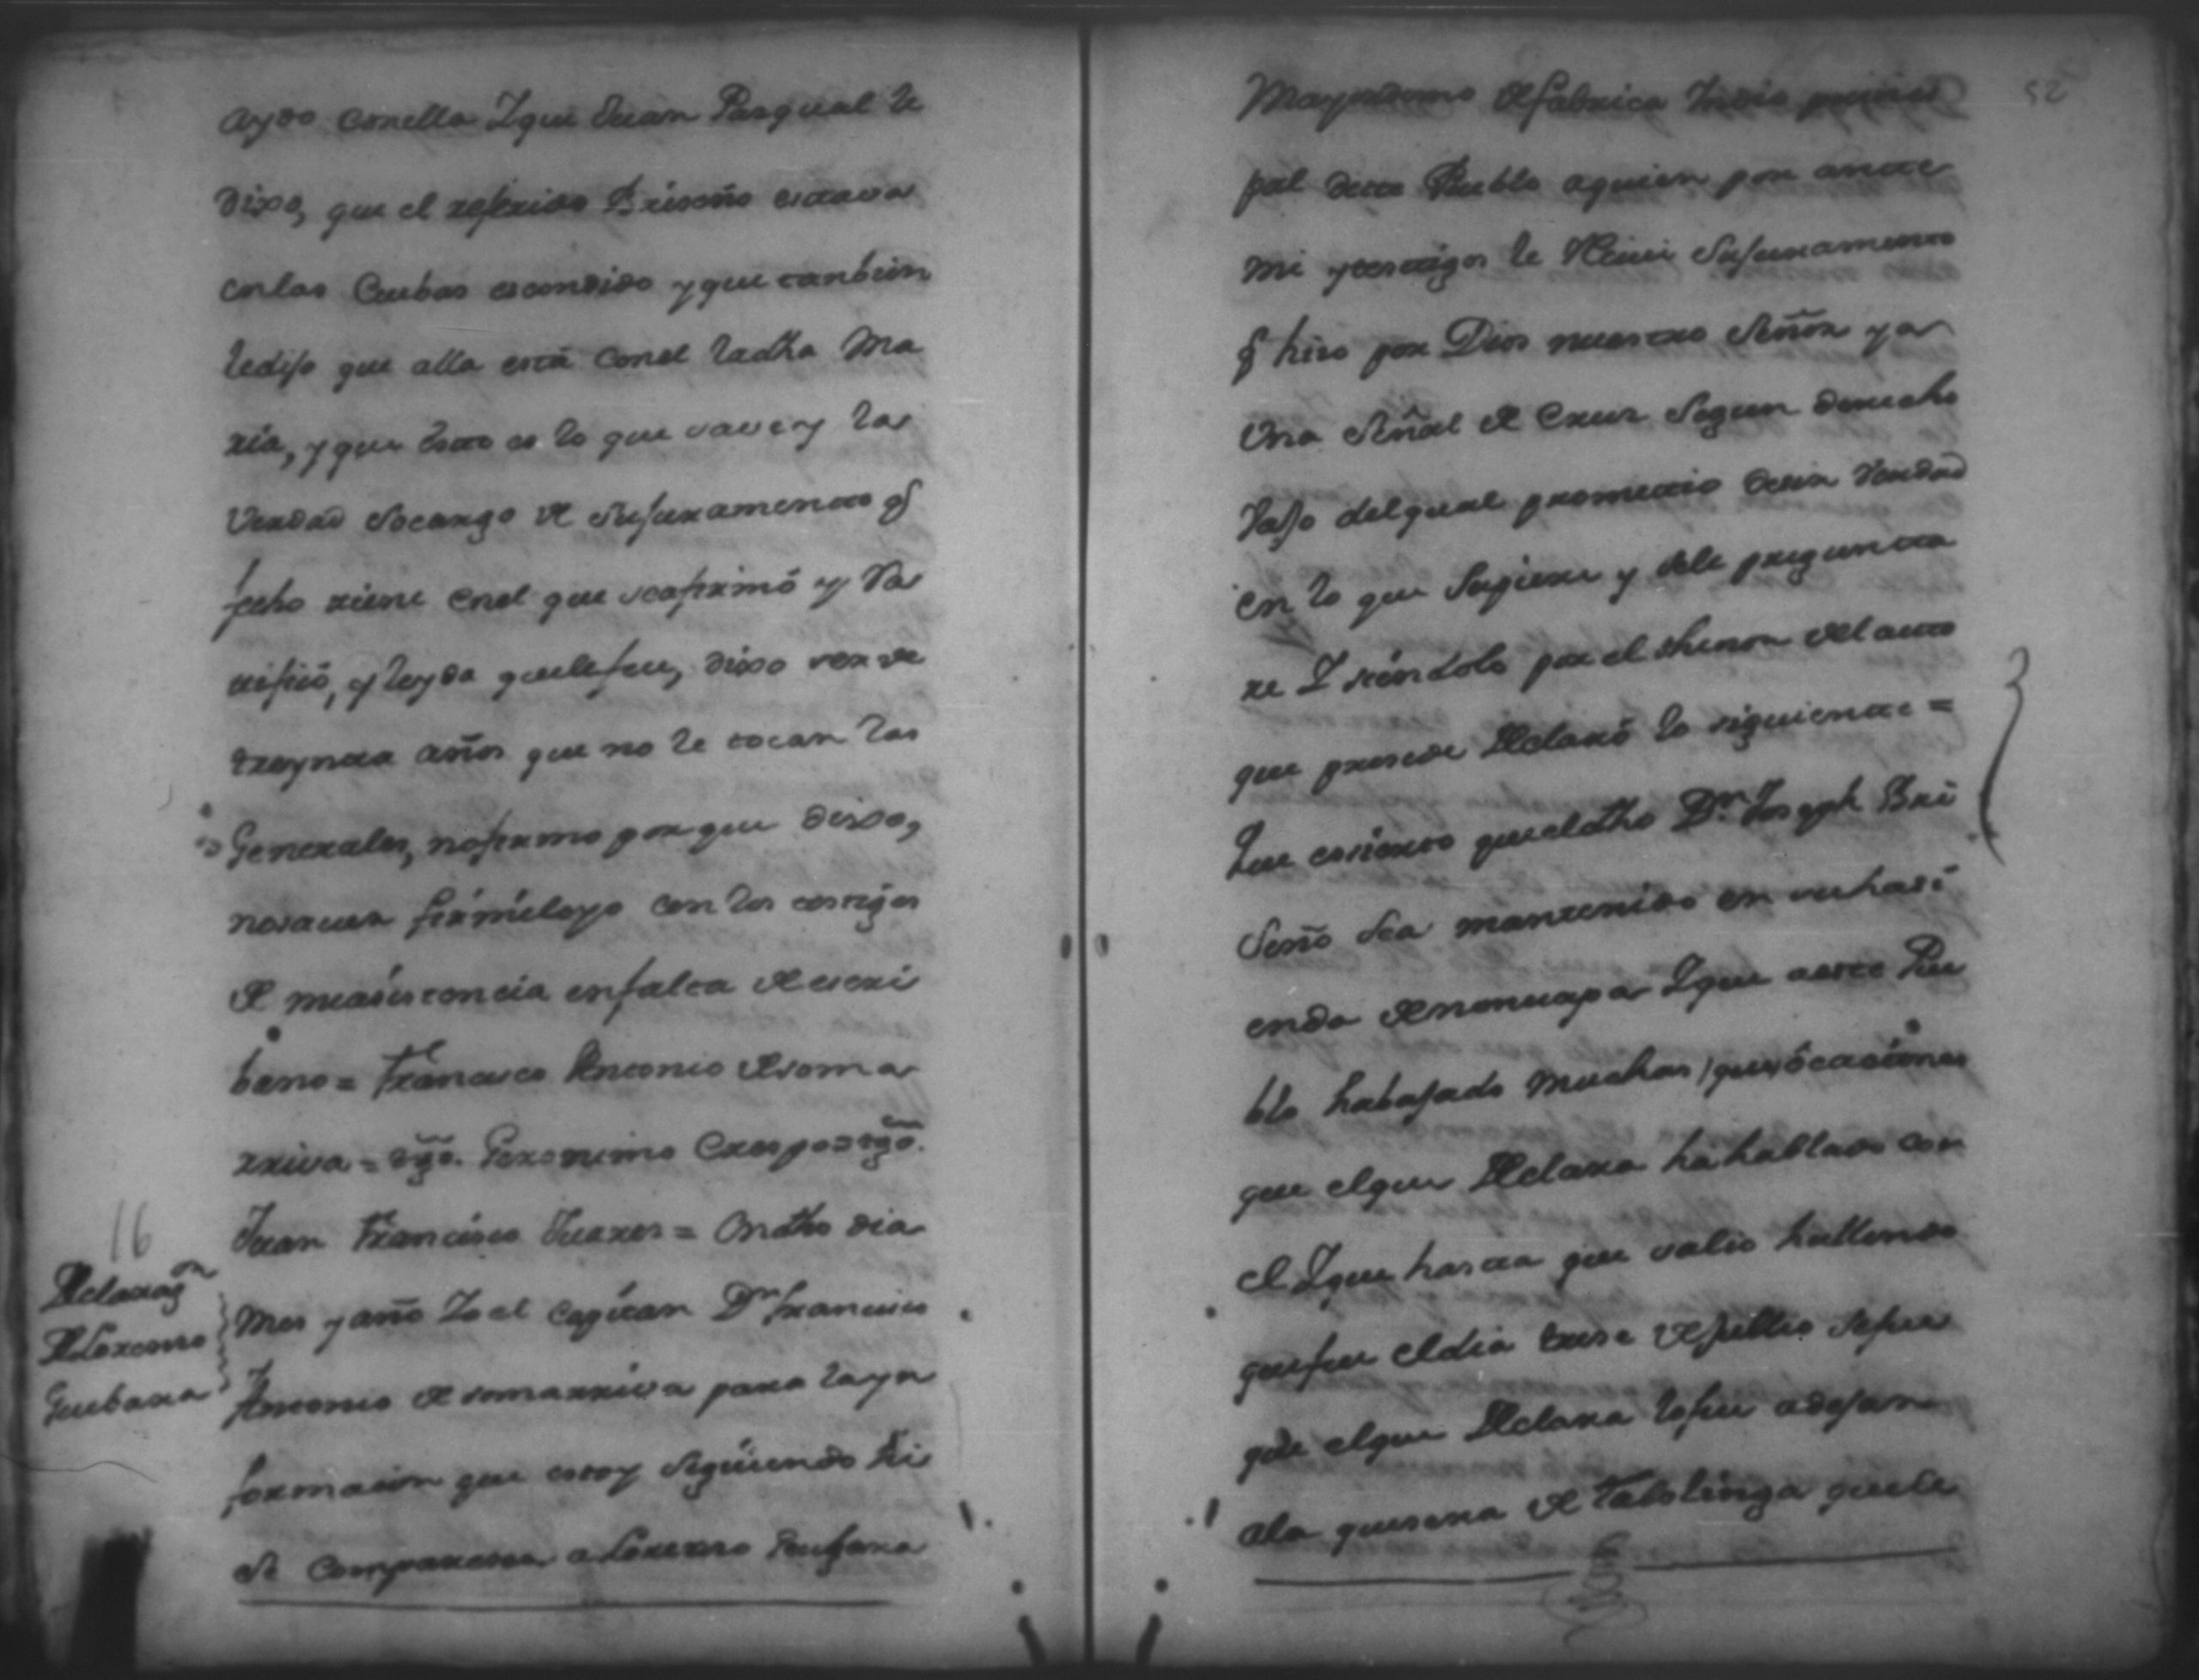 aydo conella Yque Juan Pasqual le
dixo, que el referido Briseño estava
enlas Cuebas escondido y que tanbien
ledijo que alla està conel ladha Ma
ria, y que esto es lo que save y la
Verdad Socargo de Sujuramento q̃
fecho tiene enel que seafirmò y Ra
tificò, y leyda quelefue, dixo ser de
treynta años que no le tocan las
Generales, nofirmo por que dixo,
nosaver firmèlo yo con los testigos
de miasistencia enfalta de escri
bano = Francisco Antonio de soma
rriva = tgõ. Geronimo Crespo = tgõ.
Juan Francisco Juares = Endho dia
16
Declaraçⁿ
de Lorenso
Guebara
Mes y año Yo el Capitan Dⁿ Francisco
Antonio de somarriva para layn
formacion que estoy Siguiendo hi
se Comparecer a Lorenso Guebara
52
Mayordomo de fabrica Indio prinsi
pal deste Pueblo aquien por ante
mi ytestigos le Recivi Sujuramento
q̃ hiso por Dios nuestro Señor ya
Una Señal de Cruz Segun derecho
vajo delqual prometio desir Verdad
en lo que Supiere y sele pregunta
re Y siendolo por el thenor del auto
que presede Declarò lo siguiente =
Que esierto queeldho Dⁿ Joseph Bri
Seño Sea mantenido en su hasi
enda de nonuapa Yque aeste Pue
blo habajado muchas ocasiones
que elque Declara ha hablado con
el Yque hasta que salio hullendo
quefue eldia trese de Jullio Sefue
que elque Declara lofue adejar
ala quesera de Talolinga quele